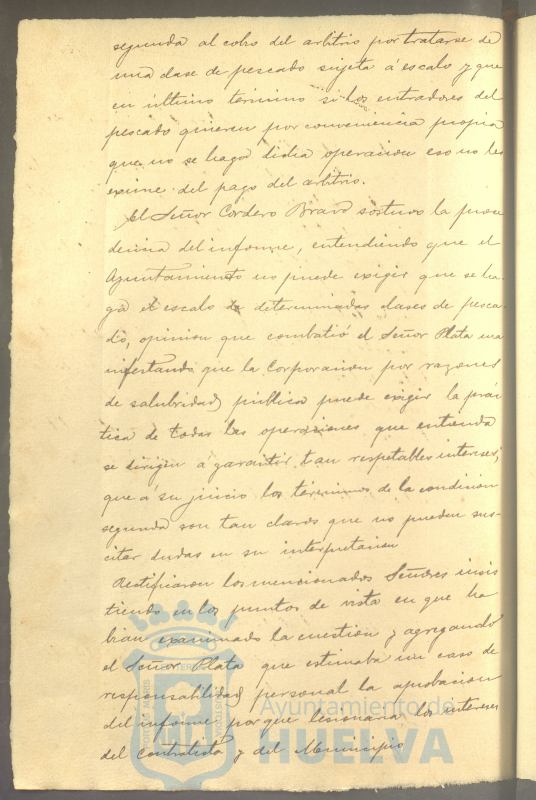 segunda al cobro del arbitrio por tratarse de
una clase de pescado sujeta á escalo y que
en último término si los entradores del
pescado quieren por conveniencia propia
que no se haga dicha operacion eso no les
exime del pago del arbitrio.
El Señor Cordero Bravo sostuvo la proce
dencia del informe, entendiendo que el
Ayuntamiento no puede exigir que se ha
ga el escalo de determinadas clases de pesca
do, opinion que combatió el Señor Plata ma
nifestando que la Corporacion por razones
de salubridad pública puede exigir la prác
tica de todas las operaciones que entienda
se dirigen á garantir tan respetables intereses,
que á su juicio los términos de la condicion
segunda son tan claros que no pueden sus-
citar dudas en su interpretacion
Rectificaron los mencionados Señores insis
tiendo en los puntos de vista en que ha
bian examinado la cuestion y agregando
el Señor Plata que estimaba un caso de
responsabilidad personal la aprobacion
del informe porque lesionaria los intereses
del contratista y del Municipio
Ayuntamiento de
HUELVA